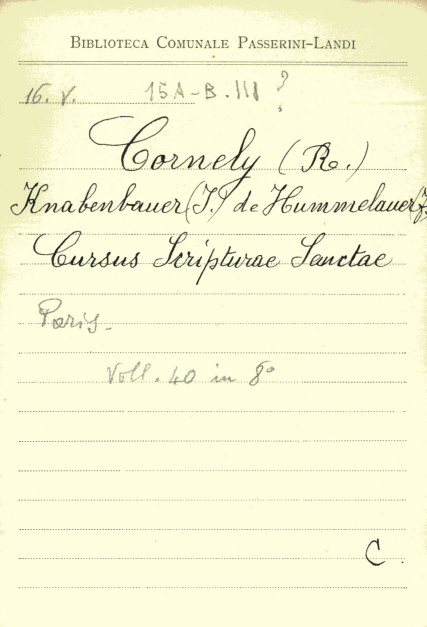 BIBLIOTECA COMUNALE PASSERINI-LANDI
16. V. 15A-B.III ?
Cornely (R.)
Knabenbauer (J.) de Hummelauer (F.
Cursus Scripturae Sanctae
Paris -
Voll. 40 in 8°
C.